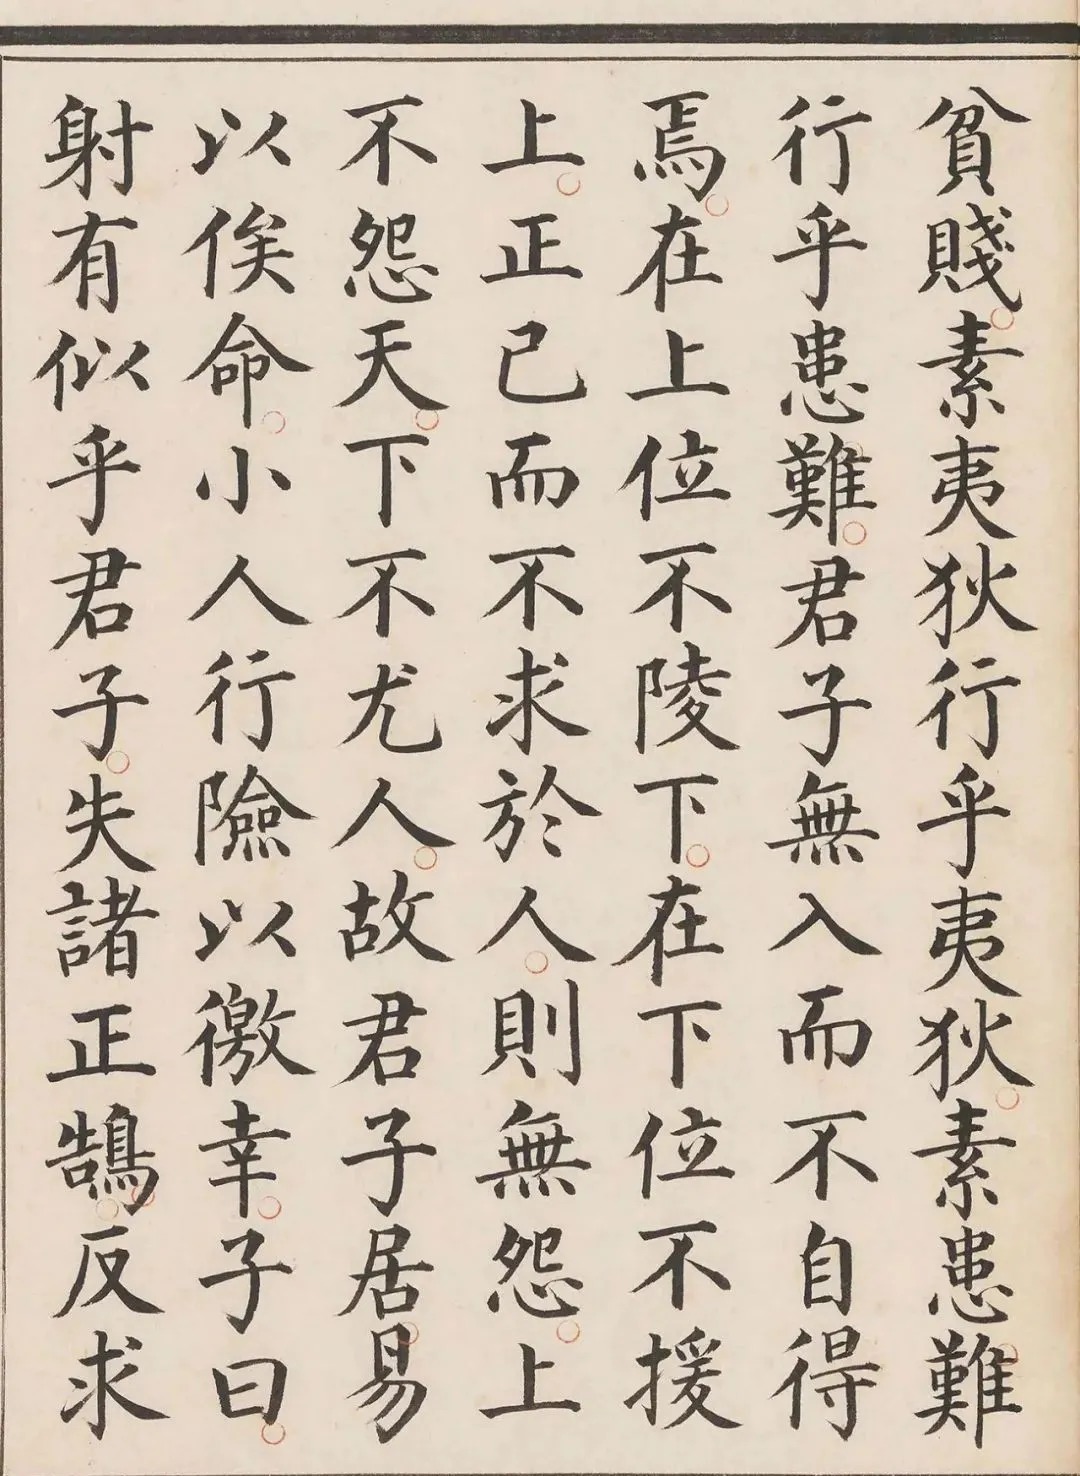 貧賤素夷狄行乎夷狄素患難
行乎患難君子無入而不自得
焉在上位不陵下在下位不援
上正己而不求於人則無怨上
不怨天下不尤人故君子居易
以俟命小人行險以徼幸子曰
射有似乎君子失諸正鵠反求